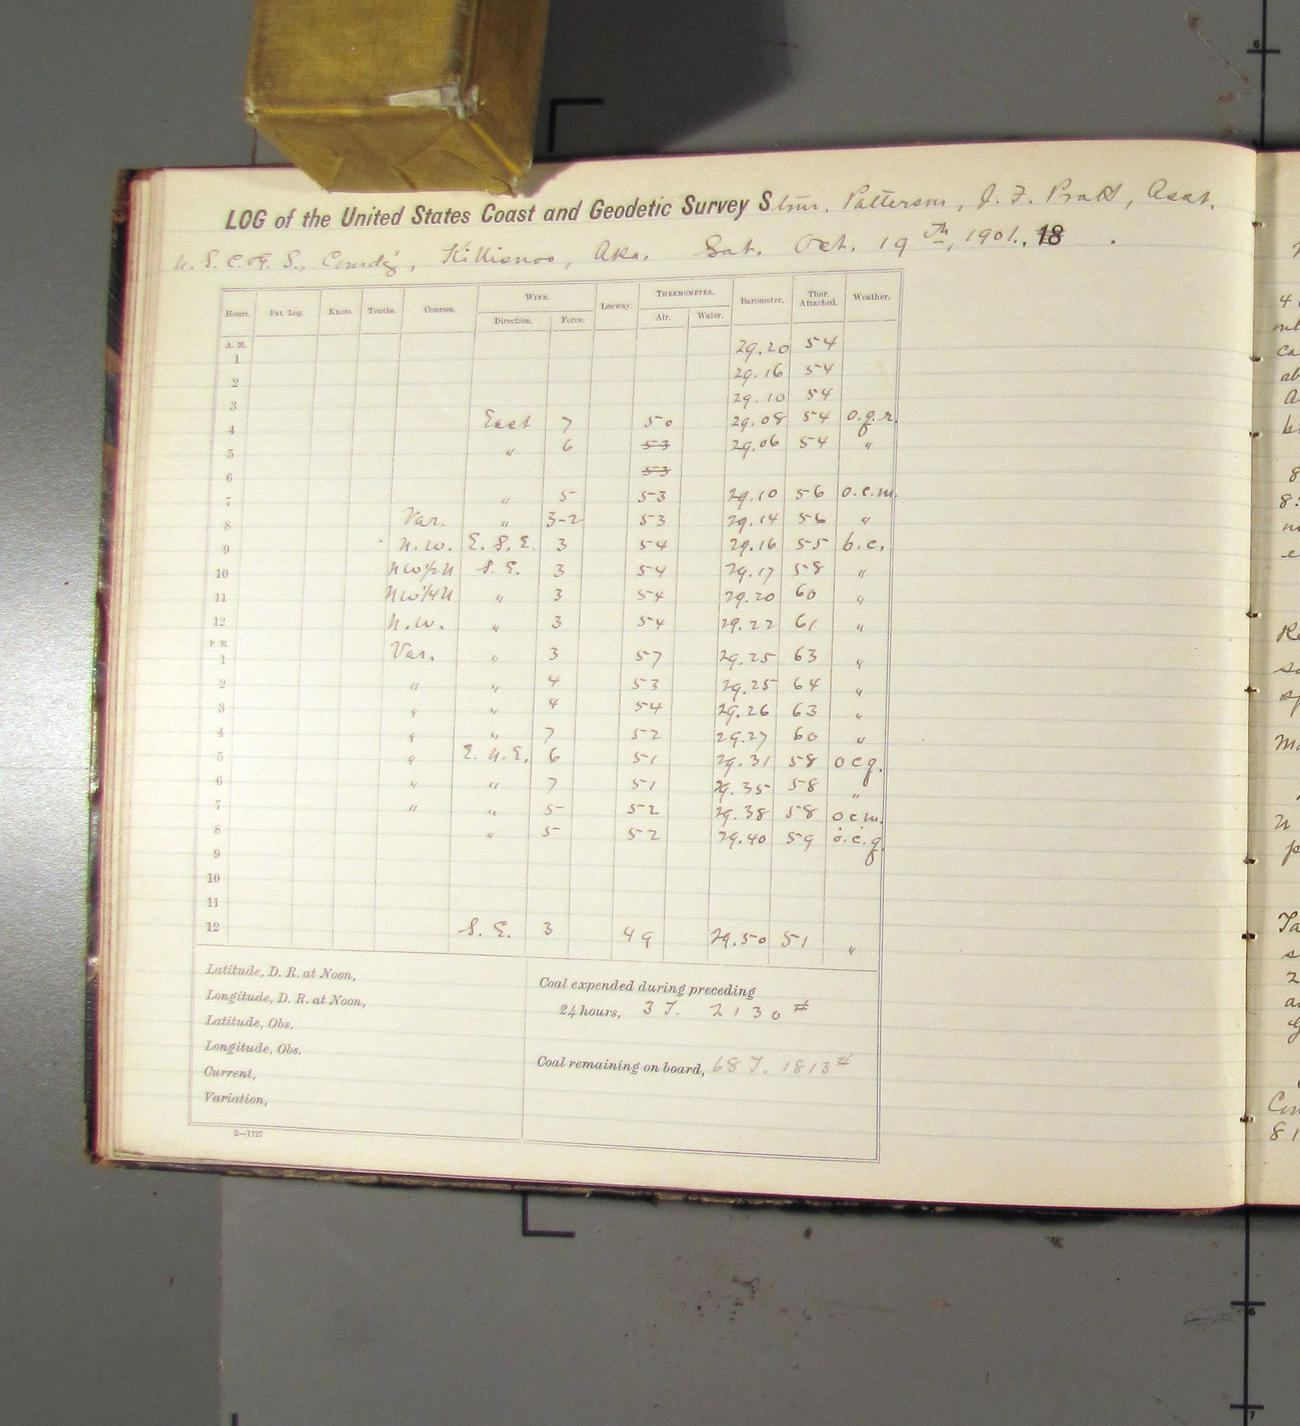 LOG of the United States Coast and Geodetic Survey Stmr. Patterson, J. F. Pratt, Asst.
U. S. C. & G. S., Comd'g, Killisnoo, Aka. Sat. Oct. 19th, 1901., 18
Hours. Pat. Log. Knots. Tenths. Courses. WIND. Leeway. THERMOMETER. Barometer. Ther. Attached. Weather.
Direction. Force. Air. Water.
A. M.
1 29.20 54
2 29.16 54
3 29.10 54
4 East 7 50 29.08 54 o.q.r.
5 " 6 53 29.06 54 "
6 53
7 " 5 53 29.10 56 o.c.m.
8 Var. " 3-2 53 29.14 56 "
9 N.W. E.S.E. 3 54 29.16 55 b.c.
10 NW½N S.E. 3 54 29.17 58 "
11 NW¼N " 3 54 29.20 60 "
12 N.W. " 3 54 29.22 61 "
P. M.
1 Var. " 3 57 29.25 63 "
2 " " 4 53 29.25 64 "
3 " " 4 54 29.26 63 "
4 " " 7 52 29.27 60 "
5 " E.N.E. 6 51 29.31 58 o c q.
6 " " 7 51 29.35 58 "
7 " " 5 52 29.38 58 o c m.
8 " 5 52 29.40 59 o.c.q.
9
10
11
12 S.E. 3 49 29.50 51 "
Latitude, D. R. at Noon,
Longitude, D. R. at Noon,
Latitude, Obs.
Longitude, Obs.
Current,
Variation,
Coal expended during preceding
24 hours, 3 T. 2130 #
Coal remaining on board, 68 T. 1813 #
2—1727